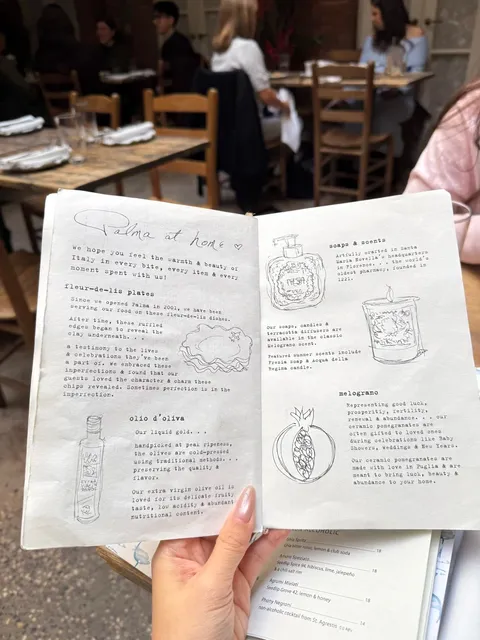 Palma at home
We hope you feel the warmth & beauty of
Italy in every bite, every item & every
moment spent with us!
fleur-de-lis plates
Since we opened Palma in 2001, we have been
serving our food on these fleur-de-lis dishes.
After time, these ruffled
edges began to reveal the
clay underneath. . .
a testimony to the lives
& celebrations they've been
a part of. We embraced these
imperfections & found that our
guests loved the character & charm these
chips revealed. Sometimes perfection is in the
imperfection.
olio d'oliva
Our liquid gold. . .
handpicked at peak ripeness,
the olives are cold-pressed
using traditional methods. . .
preserving the quality &
flavor.
Our extra virgin olive oil is
loved for its delicate fruity
taste, low acidity & abundant
nutritional content.
soaps & scents
Artfully crafted in Santa
Maria Novella's headquarters
in Florence. . . the world's
oldest pharmacy, founded in
1221.
Our soaps, candles &
terracotta diffusers are
available in the classic
Melograno scent.
Featured summer scents include
Fresia soap & acqua della
Regina candle.
melograno
Representing good luck,
prosperity, fertility,
renewal & abundance. . . our
ceramic pomegranates are
often gifted to loved ones
during celebrations like Baby
Showers, Weddings & New Years.
Our ceramic pomegranates are
made with love in Puglia & are
meant to bring luck, beauty &
abundance to your home.
lemon & club soda
Seedlip Spice 94, hibiscus, lime, jalapeño
& a chili salt rim
Agrumi Mosto
Seedlip Grove 42, lemon & honey
Phony Negroni
non-alcoholic cocktail from St. Agrestis